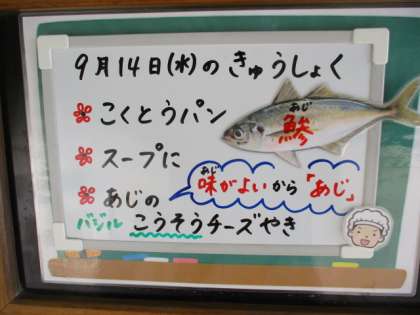 9月14日(水)のきゅうしょく
❀こくとうパン
あじ
鯵
❀スープに
あじ
味がよいから「あじ」
❀あじの
バジル こうそうチーズやき